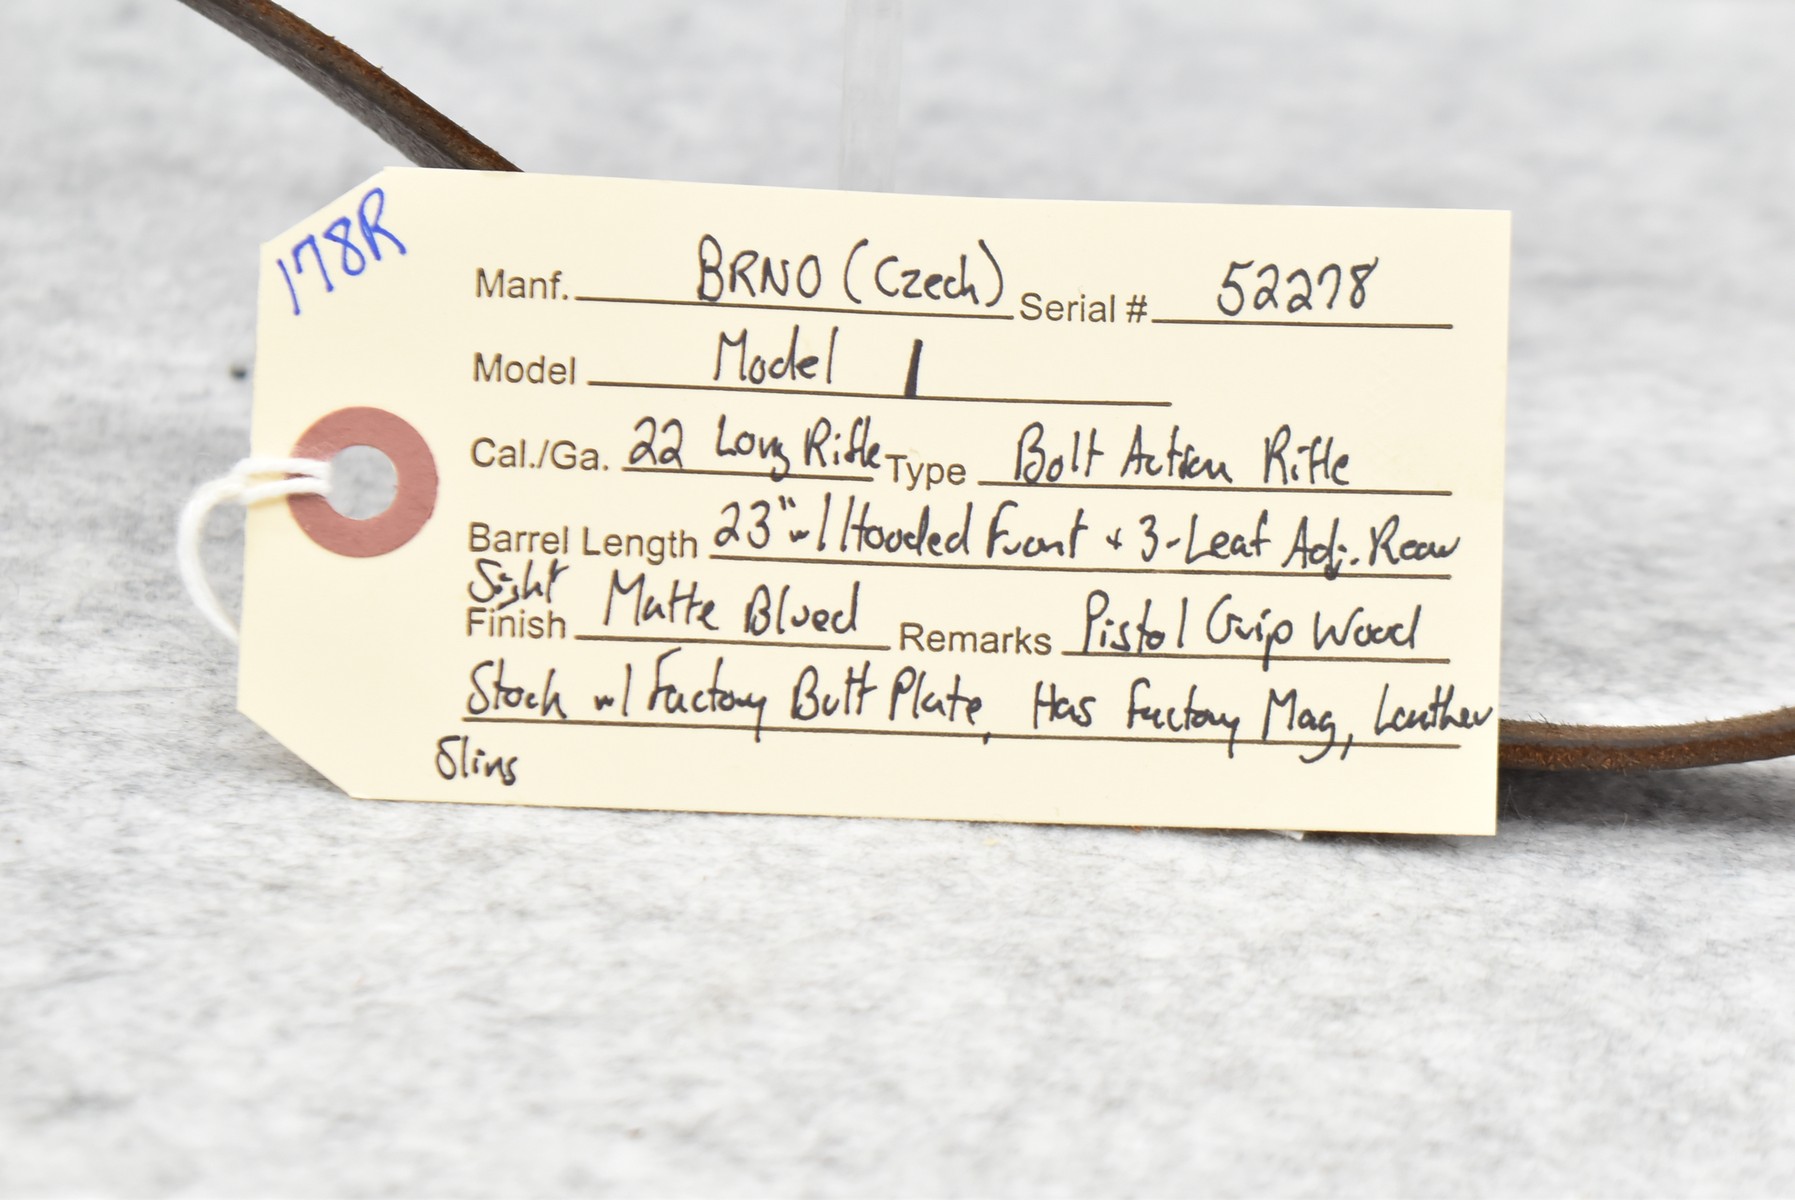 178R
Manf. BRNO (Czech) Serial # 52278
Model Model 1
Cal./Ga. 22 Long Rifle Type Bolt Action Rifle
Barrel Length 23" w/ Hooded Front + 3-Leaf Adj. Rear
Sight
Finish Matte Blued Remarks Pistol Grip Wood
Stock w/ Factory Butt Plate, Has Factory Mag, Leather
Sling